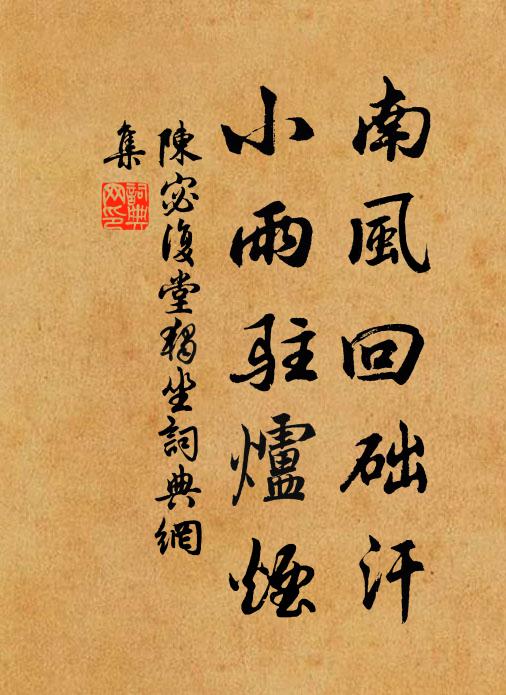 南風回础汗
小雨駐爐煙
陳宓復堂獨坐詞典網
集
詞典
网印